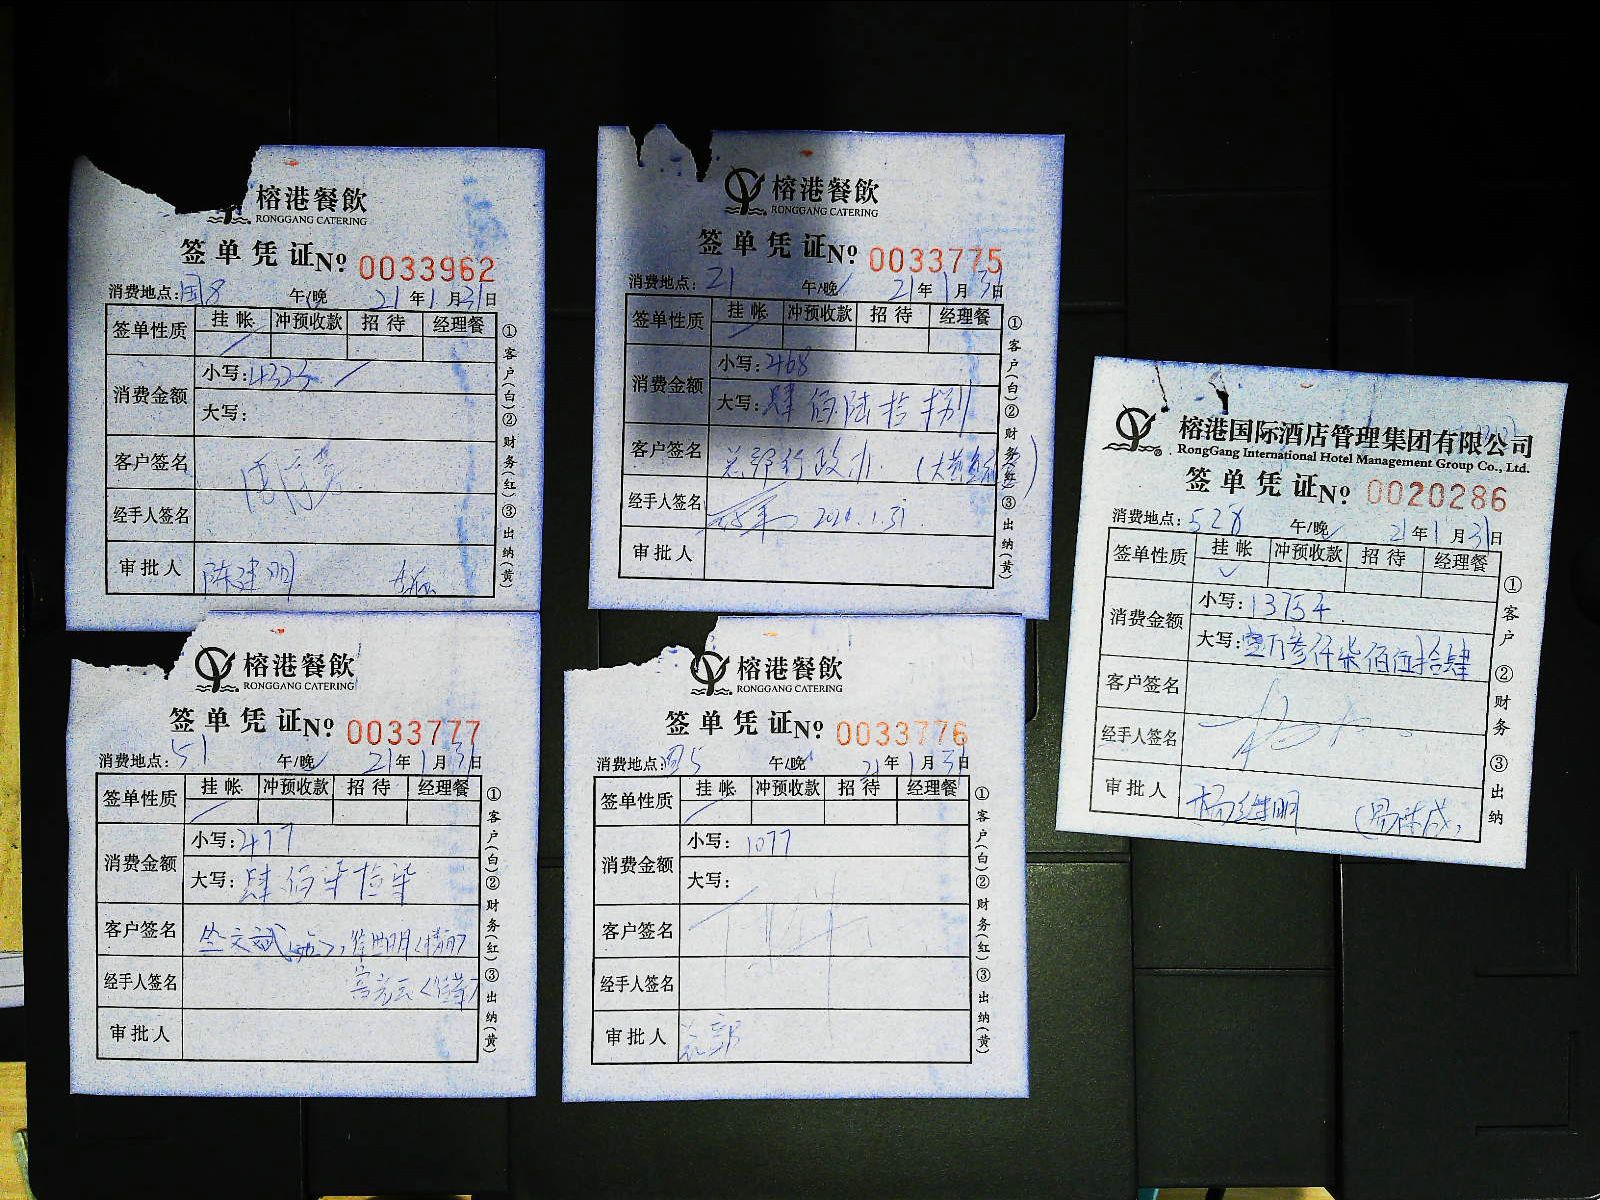 榕港餐飲
RONGGANG CATERING
签单凭证 Nº 0033962
消费地点:国8 午/晚 21年1月31日
签单性质 挂帐 冲预收款 招待 经理餐
消费金额 小写:4323
大写:
客户签名
经手人签名
审批人 陈建明
①客户(白)②财务(红)③出纳(黄)
榕港餐飲
RONGGANG CATERING
签单凭证 Nº 0033775
消费地点:21 午/晚 21年1月31日
签单性质 挂帐 冲预收款 招待 经理餐
消费金额 小写:468
大写:肆佰陆拾捌
客户签名 总部行政办
经手人签名 2021.1.31
审批人
①客户(白)②财务(红)③出纳(黄)
榕港国际酒店管理集团有限公司
RongGang International Hotel Management Group Co., Ltd.
签单凭证 Nº 0020286
消费地点:528 午/晚 21年1月31日
签单性质 挂帐 冲预收款 招待 经理餐
消费金额 小写:13754
大写:壹万参仟柒佰伍拾肆
客户签名
经手人签名
审批人 杨继明
①客户 ②财务 ③出纳
榕港餐飲
RONGGANG CATERING
签单凭证 Nº 0033777
消费地点:51 午/晚 21年1月31日
签单性质 挂帐 冲预收款 招待 经理餐
消费金额 小写:477
大写:肆佰柒拾柒
客户签名
经手人签名
审批人
①客户(白)②财务(红)③出纳(黄)
榕港餐飲
RONGGANG CATERING
签单凭证 Nº 0033776
消费地点:国5 午/晚 21年1月31日
签单性质 挂帐 冲预收款 招待 经理餐
消费金额 小写:1077
大写:
客户签名
经手人签名
审批人 总部
①客户(白)②财务(红)③出纳(黄)